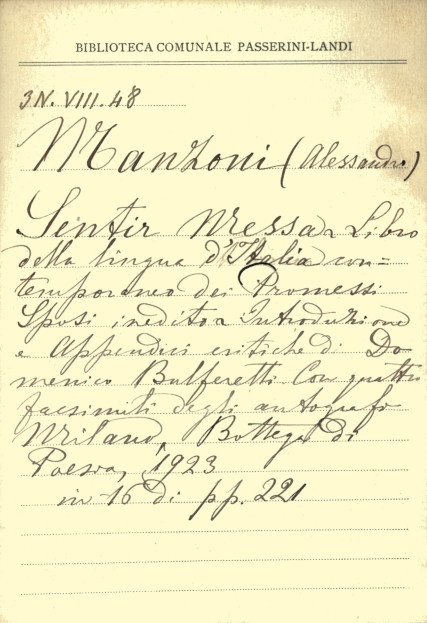 BIBLIOTECA COMUNALE PASSERINI-LANDI
3N. VIII. 48
Manzoni (Alessandro)
Sentir Messa. Libro
della lingua d'Italia con=
temporaneo dei Promessi
Sposi inedito. Introduzione
e Appendici critiche di Do
menico Bulferetti. Con quattro
facsimili degli autografi
Milano, Bottega di
Poesia, 1923
in 16 di pp. 221